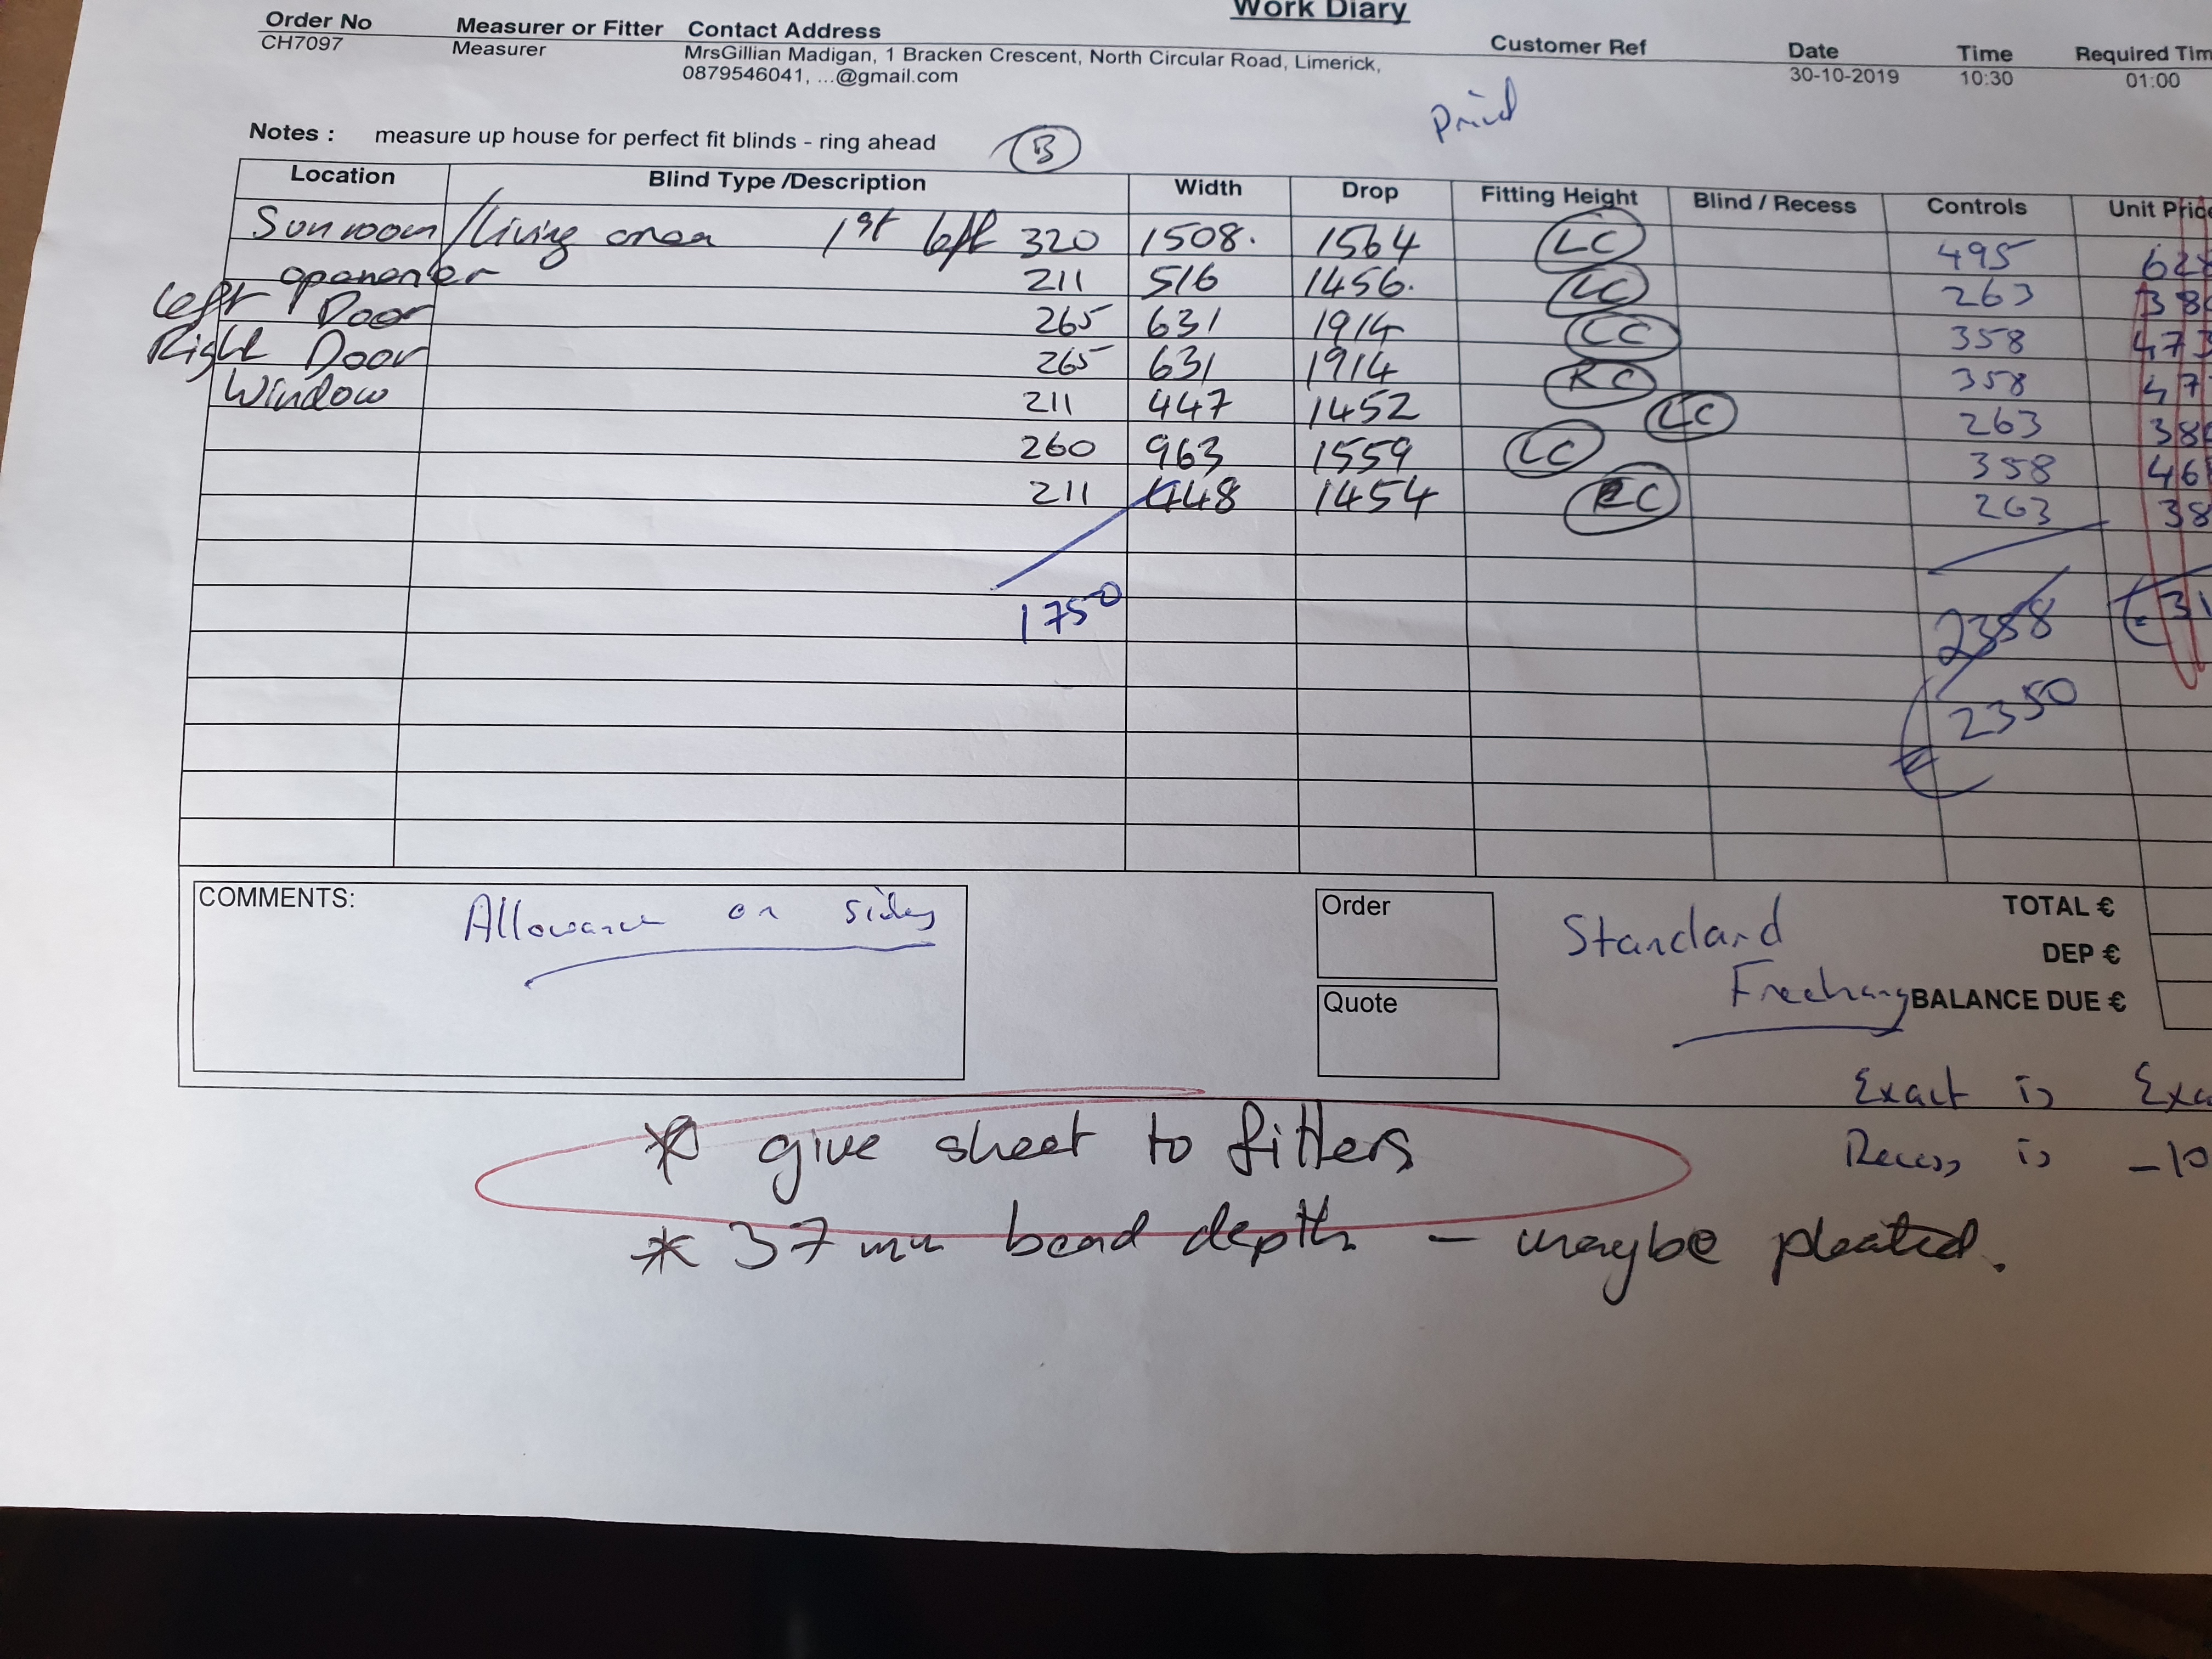 Work Diary
Order No Measurer or Fitter Contact Address Customer Ref Date Time Required Tim
CH7097 Measurer MrsGillian Madigan, 1 Bracken Crescent, North Circular Road, Limerick, 30-10-2019 10:30 01:00
0879546041, ...@gmail.com
Notes : measure up house for perfect fit blinds - ring ahead B
Location Blind Type /Description Width Drop Fitting Height Blind / Recess Controls Unit Price
Sunroom/living area 1st left 320 1508. 1564 LC 495
211 516 1456. LC 263
Left Door 265 631 1914 LC 358 473
Right Door 265 631 1914 RC 358 47
Window 211 447 1452 LC 263 38
260 963 1559 LC 358 46
211 448 1454 RC 263 38
1750 2358 € 31
€ 2350
COMMENTS: Allowance on sides
Order Standard TOTAL €
Freehang DEP €
Quote BALANCE DUE €
Exact is Exa
* give sheet to fitters Recess is -10
* 37mm bead depth - maybe pleated.